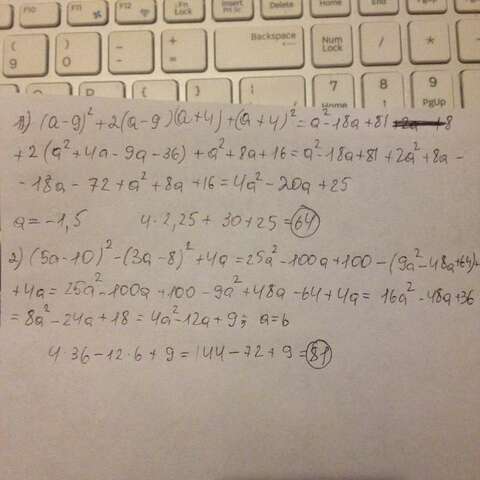 F10 F11 F12 PrtScn SysRq Insert Prt Sc Delete Home PgUp PgDn
) 9 0 _ - + = Backspace Num Lock / *
{ [ } ] | \ 7 Home 8 9 PgUp
1) (a-9)² + 2(a-9)(a+4) + (a+4)² = a² - 18a + 81
+ 2(a² + 4a - 9a - 36) + a² + 8a + 16 = a² - 18a + 81 + 2a² + 8a -
- 18a - 72 + a² + 8a + 16 = 4a² - 20a + 25
a = -1,5 4 · 2,25 + 30 + 25 = 64
2) (5a-10)² - (3a-8)² + 4a = 25a² - 100a + 100 - (9a² - 48a + 64) +
+ 4a = 25a² - 100a + 100 - 9a² + 48a - 64 + 4a = 16a² - 48a + 36
= 8a² - 24a + 18 = 4a² - 12a + 9; a = 6
4 · 36 - 12 · 6 + 9 = 144 - 72 + 9 = 81